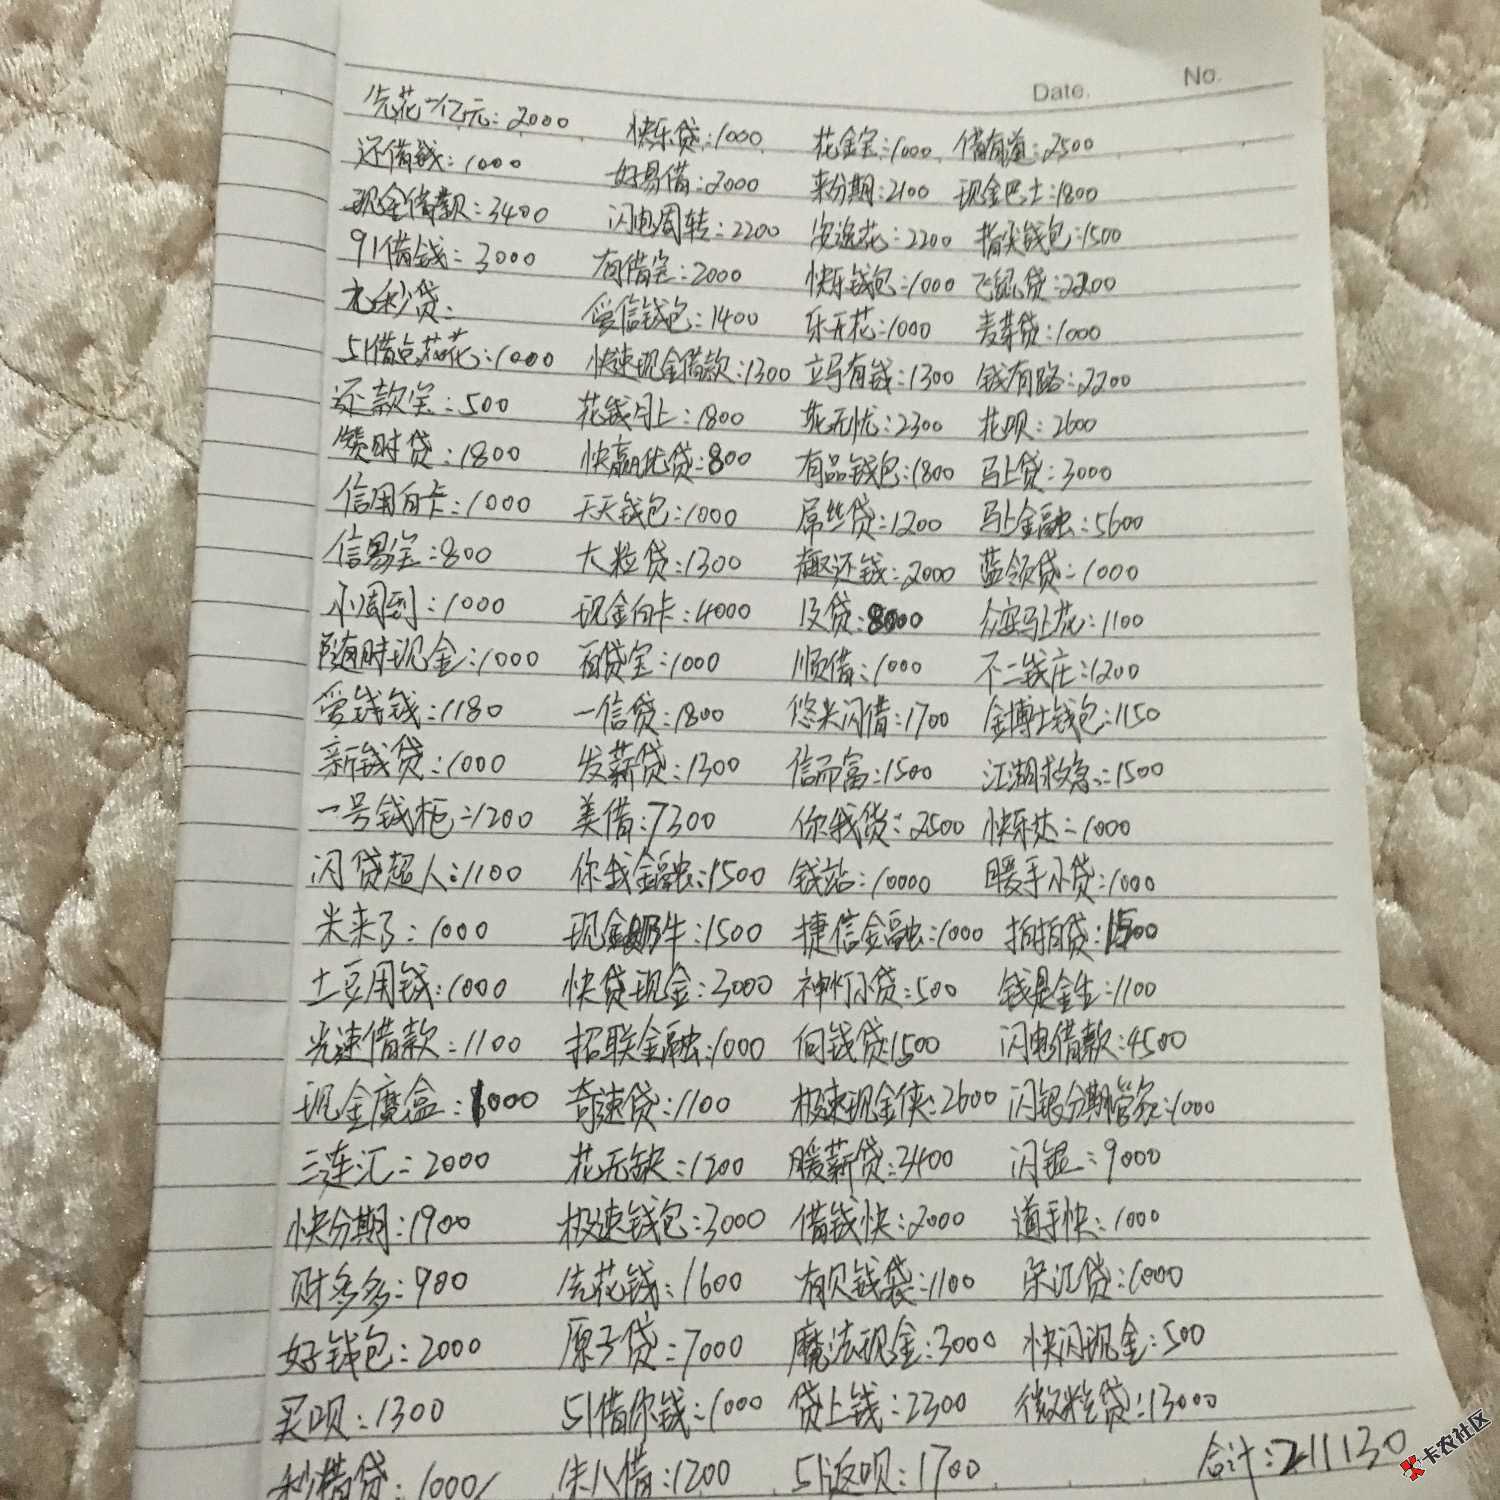 Date. No.
先花一亿元:2000 快乐贷:1000 花金宝:1000 借有道:2500
还借钱:1000 好易借:2000 来分期:2100 现金巴士:1800
现金借款:3400 闪电周转:2200 安逸花:2200 指尖钱包:1500
91借钱:3000 有借宝:2000 快乐钱包:1000 飞鼠贷:2200
元秒贷: 爱信钱包:1400 乐开花:1000 麦芽贷:1000
51借点花花:1000 快速现金借款:1300 立马有钱:1300 钱有路:2200
还款宝:500 花钱月上:1800 花无忧:2300 花呗:2600
赞时贷:1800 快赢优贷:800 有品钱包:1800 马上贷:3000
信用白卡:1000 天天钱包:1000 屌丝贷:1200 马上金融:5600
信易宝:800 大粒贷:1300 趣还钱:2000 蓝领贷:1000
小周到:1000 现金白卡:4000 及贷:8000 众安马上花:1100
随时现金:1000 百贷宝:1000 顺借:1000 不二钱庄:1200
爱钱钱:1180 一信贷:1800 悠米闪借:1700 金博士钱包:1150
新钱贷:1000 发薪贷:1300 信而富:1500 江湖救急:1500
一号钱柜:1200 美借:7300 你我贷:2500 快乐达:1000
闪贷超人:1100 你我金融:1500 钱站:10000 暖手小贷:1000
米来了:1000 现金奶牛:1500 捷信金融:1000 拍拍贷:1500
土豆用钱:1000 快贷现金:3000 神灯小贷:500 钱是金生:1100
光速借款:1100 招联金融:1000 向钱贷:1500 闪电借款:4500
现金魔盒:1000 奇速贷:1100 极速现金侠:2600 闪银分期管家:1000
三连汇:2000 花无缺:1200 暖薪贷:3400 闪银:9000
快分期:1900 极速钱包:3000 借钱快:2000 道手快:1000
财多多:900 先花钱:1600 有贝钱袋:1100 荣江贷:1000
好钱包:2000 原子贷:7000 魔法现金:3000 快闪现金:500
买呗:1300 51借你钱:1000 贷上钱:2300 微粒贷:13000
秒借贷:1000 朱八借:1200 51返呗:1700 合计:211130
卡农社区